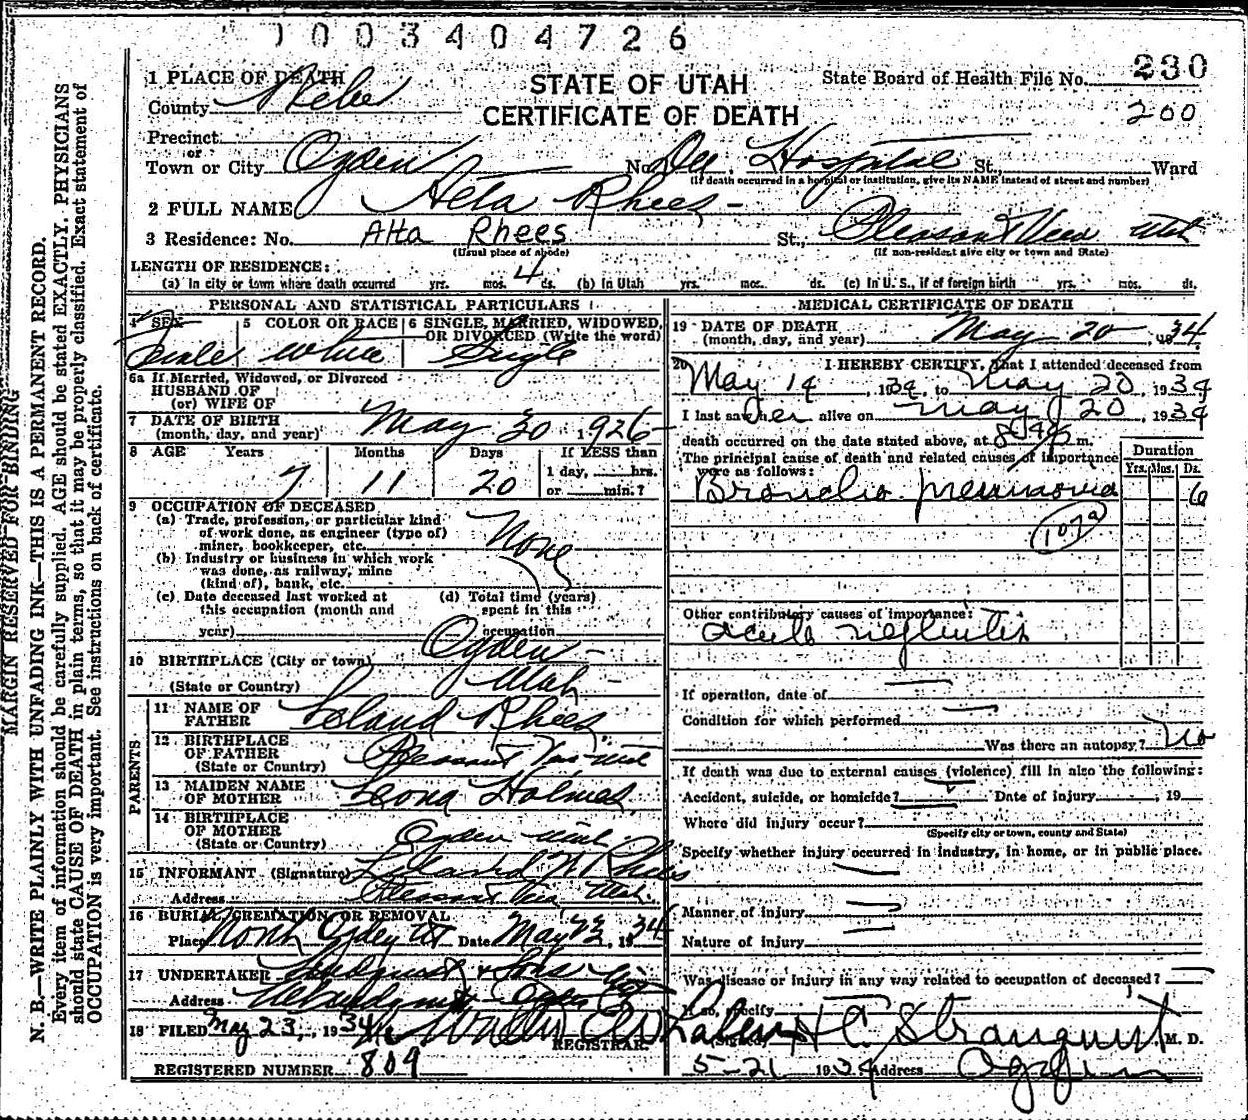 1003404726
230
1 PLACE OF DEATH
STATE OF UTAH
State Board of Health File No.
County Weber
CERTIFICATE OF DEATH
200
Precinct
or
Town or City Ogden No. Dee Hospital St., Ward
(If death occurred in a hospital or institution, give its NAME instead of street and number)
2 FULL NAME Alta Rhees
3 Residence: No. Alta Rhees St., Pleasant View Utah
(Usual place of abode) (If non-resident give city or town and State)
LENGTH OF RESIDENCE:
(a) In city or town where death occurred yrs. mos. 4 ds. (b) In Utah yrs. mos. ds. (c) In U. S., if of foreign birth yrs. mos. ds.
PERSONAL AND STATISTICAL PARTICULARS
4 SEX 5 COLOR OR RACE 6 SINGLE, MARRIED, WIDOWED, OR DIVORCED (Write the word)
Female White Single
6a If Married, Widowed, or Divorced
HUSBAND OF
(or) WIFE OF
7 DATE OF BIRTH
(month, day, and year) May 30 1926
8 AGE Years Months Days If LESS than
1 day, hrs.
7 11 20 or min.?
9 OCCUPATION OF DECEASED
(a) Trade, profession, or particular kind
of work done, as engineer (type of)
miner, bookkeeper, etc. None
(b) Industry or business in which work
was done, as railway, mine
(kind of), bank, etc.
(c) Date deceased last worked at
this occupation (month and
year)
(d) Total time (years)
spent in this
occupation
10 BIRTHPLACE (City or town) Ogden
(State or Country) Utah
PARENTS
11 NAME OF
FATHER Leland Rhees
12 BIRTHPLACE
OF FATHER
(State or Country) Pleasant View
13 MAIDEN NAME
OF MOTHER Leona Holmes
14 BIRTHPLACE
OF MOTHER
(State or Country) Ogden Utah
15 INFORMANT (Signature) Leland W Rhees
Address Pleasant View Utah
16 BURIAL, CREMATION, OR REMOVAL
Place North Ogden Ut Date May 23, 1934
17 UNDERTAKER Lindquist & Sons
Address Ogden
18 FILED May 23, 1934
REGISTRAR.
REGISTERED NUMBER 809
MEDICAL CERTIFICATE OF DEATH
19 DATE OF DEATH
(month, day, and year) May 20, 1934
20 I HEREBY CERTIFY, That I attended deceased from
May 14, 1934, to May 20, 1934
I last saw her alive on May 20, 1934
death occurred on the date stated above, at m.
The principal cause of death and related causes of importance
were as follows:
Duration
Yrs. Mos. Ds.
Broncho pneumonia 6
107a
Other contributory causes of importance:
acute nephritis
If operation, date of
Condition for which performed
Was there an autopsy? No
If death was due to external causes (violence) fill in also the following:
Accident, suicide, or homicide? Date of injury , 19
Where did injury occur?
(Specify city or town, county and State)
Specify whether injury occurred in industry, in home, or in public place.
Manner of injury
Nature of injury
Was disease or injury in any way related to occupation of deceased?
If so, specify
H C Stranquist M. D.
5-21 1934 Address Ogden
MARGIN RESERVED FOR BINDING
N. B.—WRITE PLAINLY WITH UNFADING INK—THIS IS A PERMANENT RECORD.
Every item of information should be carefully supplied. AGE should be stated EXACTLY. PHYSICIANS
should state CAUSE OF DEATH in plain terms, so that it may be properly classified. Exact statement of
OCCUPATION is very important. See instructions on back of certificate.